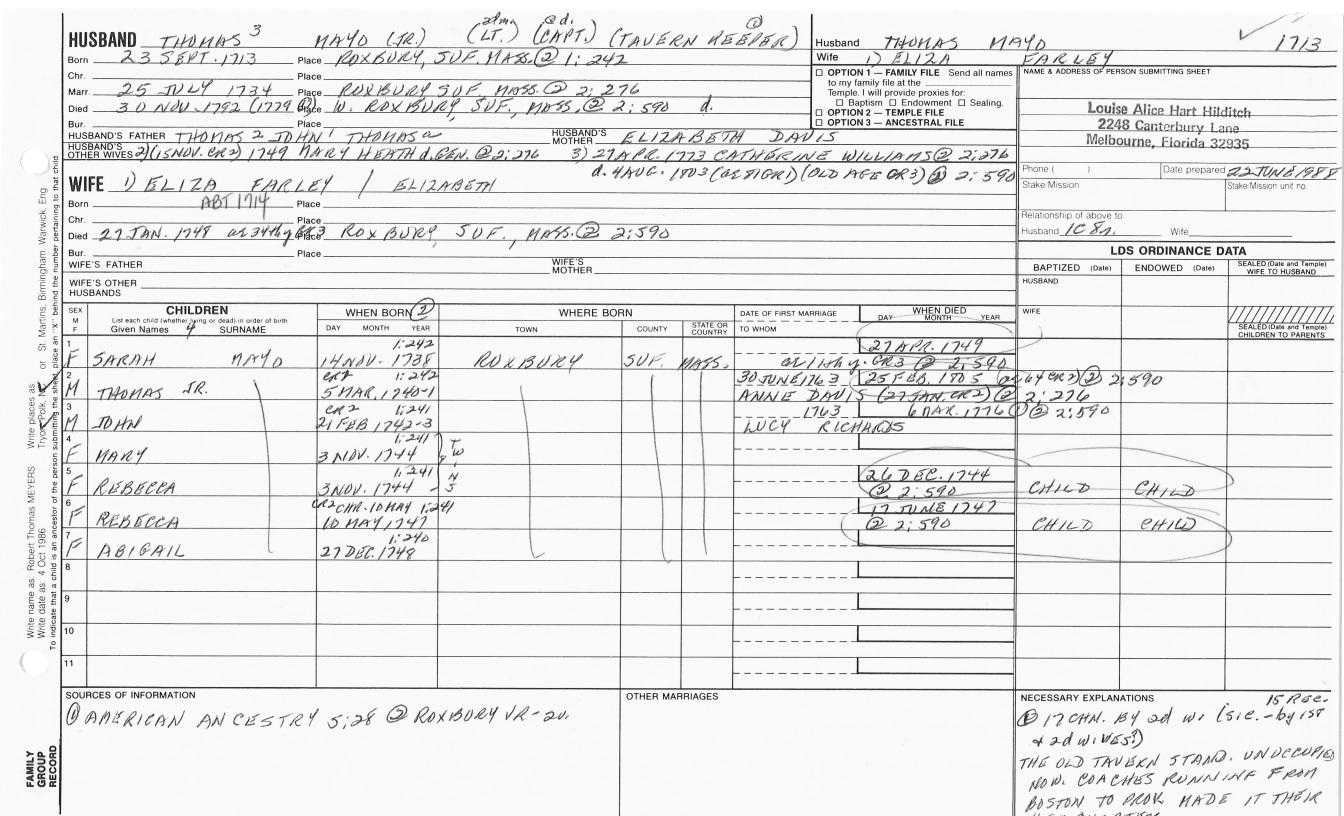 HUSBAND THOMAS 3 MAYO (JR.) (LT.) (CAPT.) (TAVERN KEEPER) ①
Born 23 SEPT. 1713 Place ROXBURY, SUF. MASS. ② 1:242
Chr. Place
Marr. 25 JULY 1734 Place ROXBURY SUF. MASS. ② 2:276
Died 30 NOV. 1792 (1779 ①) Place W. ROXBURY, SUF, MASS. ② 2:590 d.
Bur. Place
HUSBAND'S FATHER THOMAS 2 JOHN 1 THOMAS a HUSBAND'S MOTHER ELIZABETH DAVIS
HUSBAND'S OTHER WIVES 2) (15 NOV. CR2) 1749 MARY HEATH d. GEN. ② 2:276 3) 27 APR. 1773 CATHERINE WILLIAMS ② 2:276
d. 4 AUG. 1803 (OLD AGE CR3) ② 2:590
WIFE 1) ELIZA FARLEY / ELIZABETH
Born ABT 1714 Place
Chr. Place
Died 27 JAN. 1748 Place ROXBURY, SUF., MASS. ② 2:590
Bur. Place
WIFE'S FATHER WIFE'S MOTHER
WIFE'S OTHER HUSBANDS
Husband THOMAS MAYO 1713
Wife 1) ELIZA FARLEY
☐ OPTION 1 — FAMILY FILE Send all names
to my family file at the
Temple. I will provide proxies for:
☐ Baptism ☐ Endowment ☐ Sealing.
☐ OPTION 2 — TEMPLE FILE
☐ OPTION 3 — ANCESTRAL FILE
NAME & ADDRESS OF PERSON SUBMITTING SHEET
Louise Alice Hart Hilditch
2248 Canterbury Lane
Melbourne, Florida 32935
Phone ( ) Date prepared 22 JUNE 1988
Stake Mission Stake/Mission unit no.
Relationship of above to
Husband 1C 8r. Wife
LDS ORDINANCE DATA
BAPTIZED (Date) ENDOWED (Date) SEALED (Date and Temple) WIFE TO HUSBAND
HUSBAND
WIFE
SEALED (Date and Temple) CHILDREN TO PARENTS
SEX M F CHILDREN WHEN BORN ② WHERE BORN DATE OF FIRST MARRIAGE WHEN DIED
List each child (whether living or dead) in order of birth
Given Names 4 SURNAME DAY MONTH YEAR TOWN COUNTY STATE OR COUNTRY TO WHOM DAY MONTH YEAR
1 1:242 27 APR. 1749
F SARAH MAYO 14 NOV. 1738 ROXBURY SUF. MASS. CR3 ② 2:590
2 CR2 1:242 30 JUNE 1763 25 FEB. 1805 CR2) ② 2:590
M THOMAS JR. 5 MAR. 1740-1 ANNE DAVIS (27 JAN. CR2) ② 2:276
3 CR2 1:241 1763 6 MAR. 1776 ① ② 2:590
M JOHN 21 FEB 1742-3 LUCY RICHARDS
4 1:241
F MARY 3 NOV. 1744 TWINS
5 1:241 26 DEC. 1744
F REBECCA 3 NOV. 1744 ② 2:590 CHILD CHILD
6 CR2 CHR. 10 MAY 1:241 17 JUNE 1747
F REBECCA 10 MAY, 1747 ② 2:590 CHILD CHILD
7 1:240
F ABIGAIL 27 DEC. 1748
8
9
10
11
SOURCES OF INFORMATION
① AMERICAN ANCESTRY 5:28 ② ROXBURY VR-2v.
OTHER MARRIAGES
NECESSARY EXPLANATIONS 15 Rec.
① 17 CHN. BY 2d W. (sic. - by 1st
& 2d WIVES?)
THE OLD TAVERN STAND. UNOCCUPIED
NOW. COACHES RUNNING FROM
BOSTON TO PROV. MADE IT THEIR
Write name as: Robert Thomas MEYERS Write places as: Tryon, Polk, NC or St Martins, Birmingham, Warwick, Eng
Write date as: 4 Oct 1986
To indicate that a child is an ancestor of the person submitting the sheet, place an "X" behind the number pertaining to that child
FAMILY GROUP RECORD